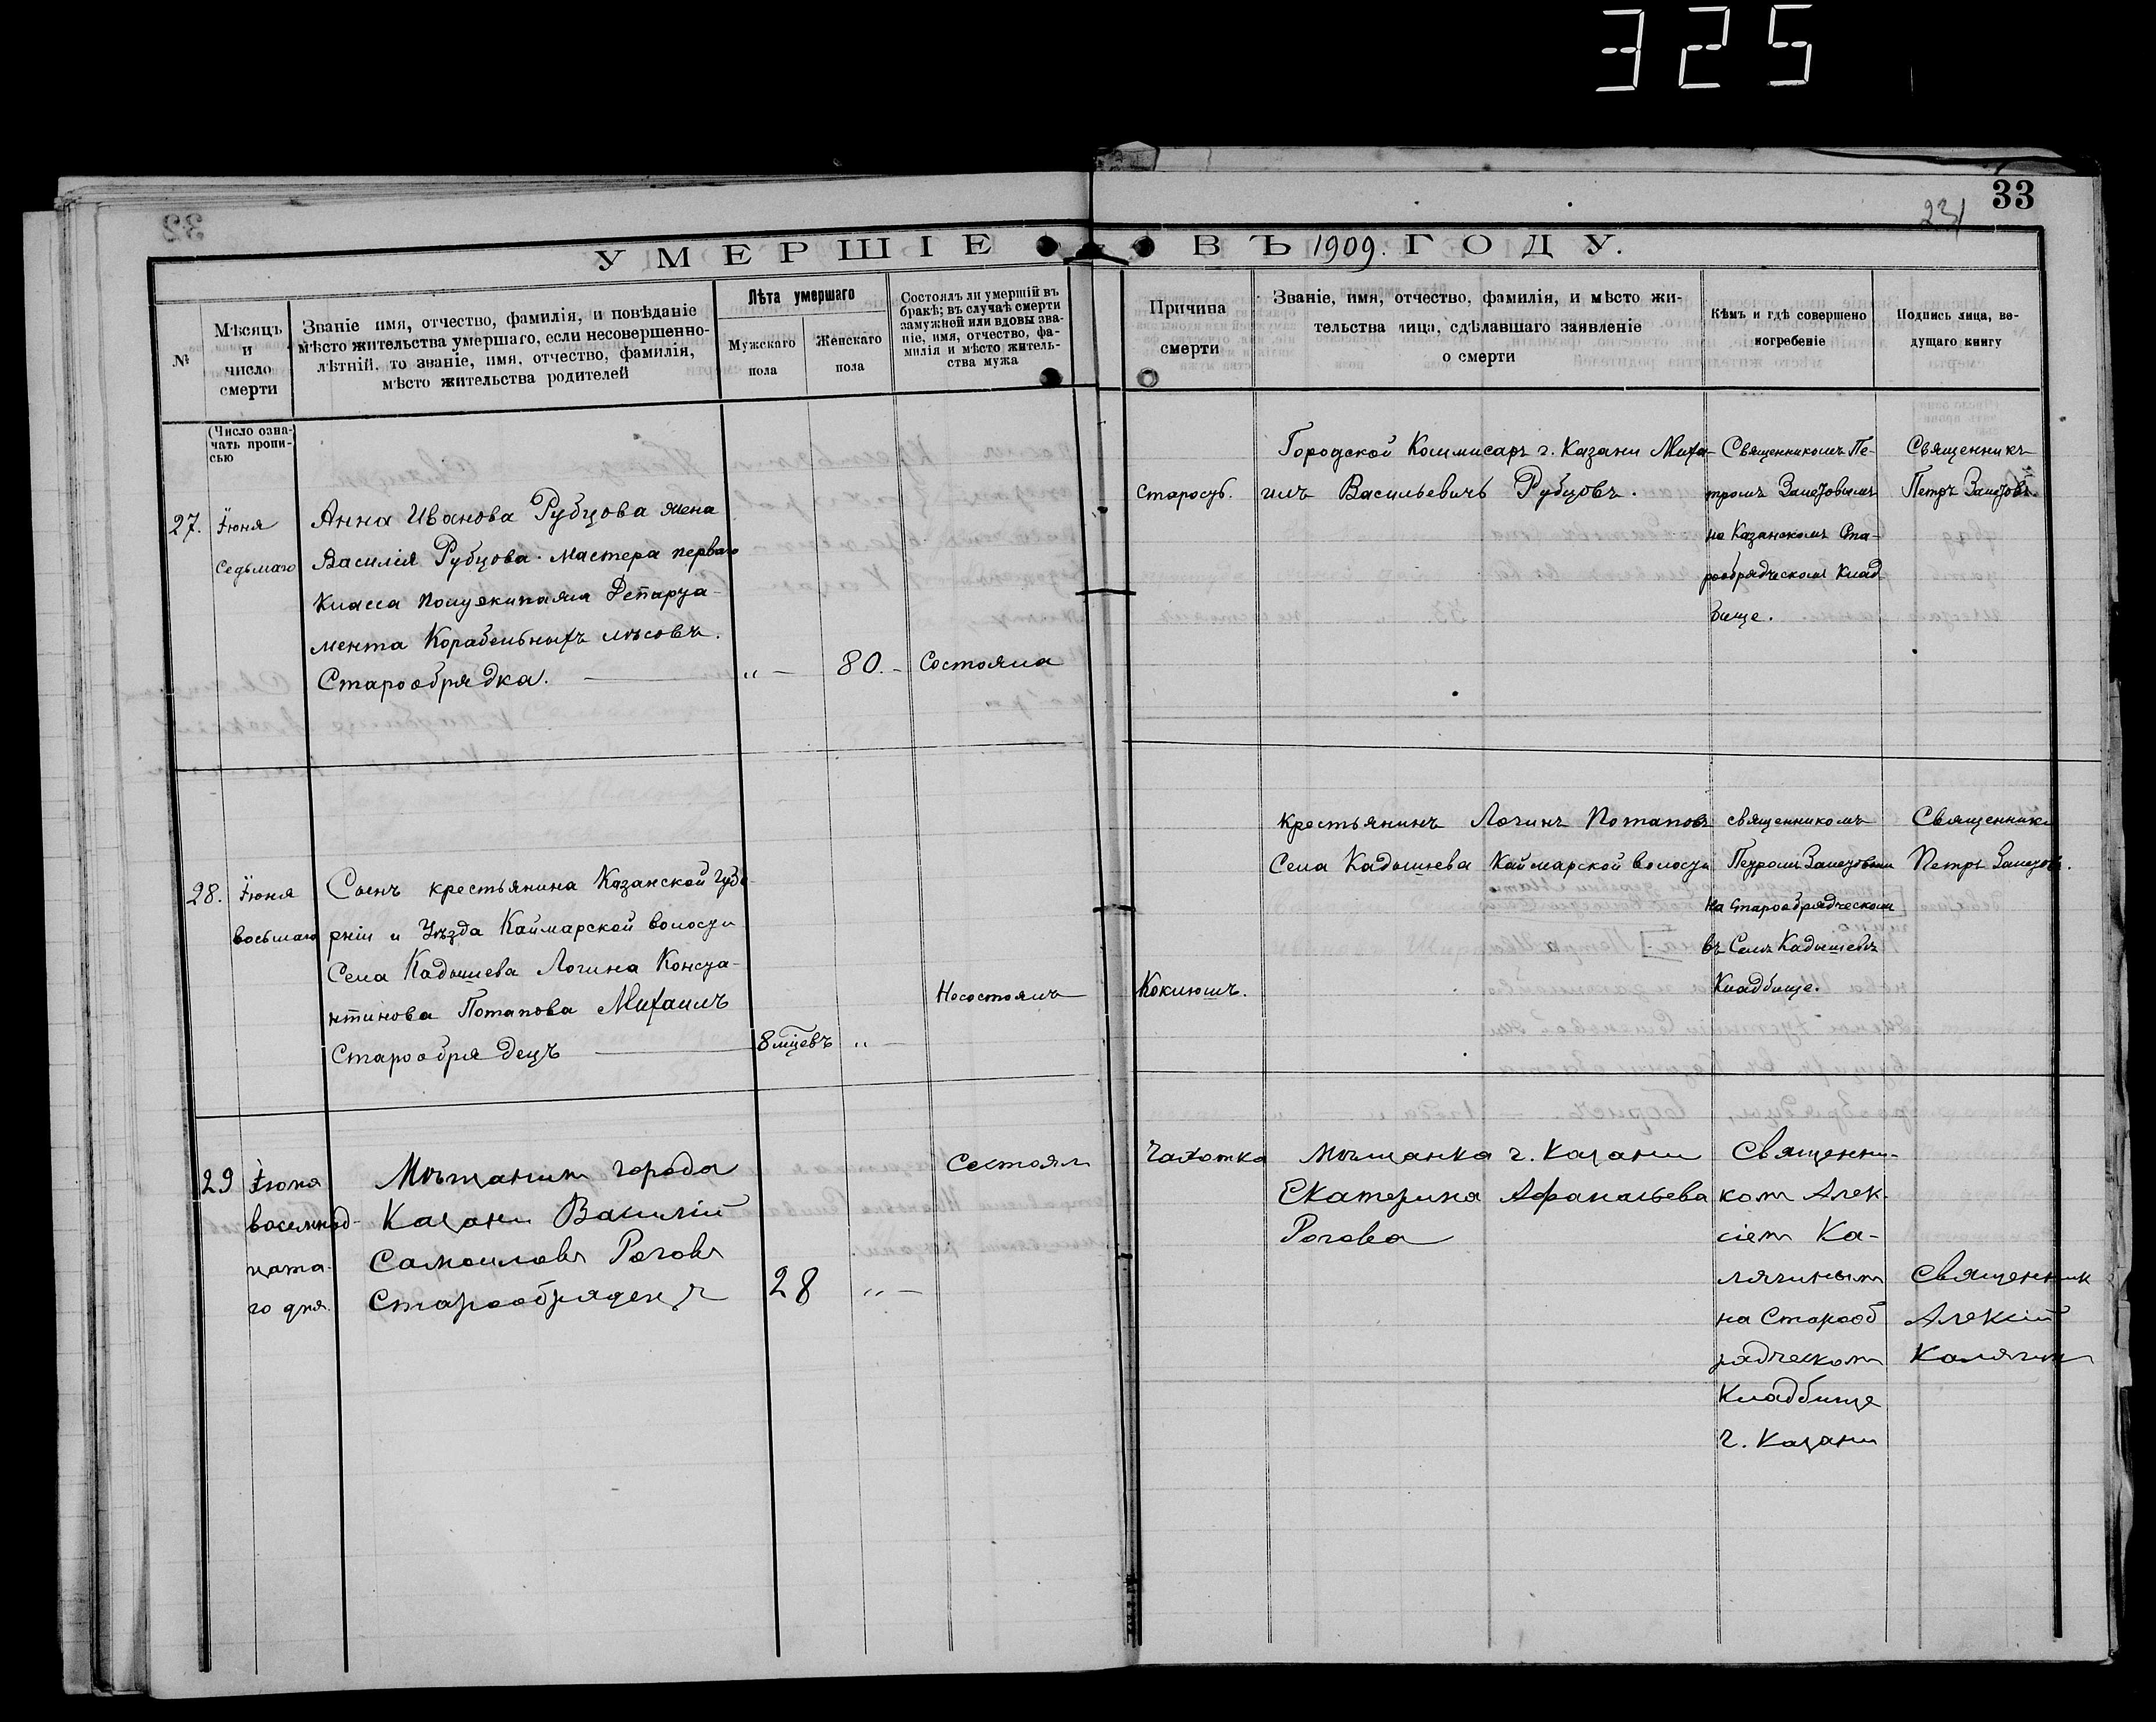 325
33
231
УМЕРШІЕ ВЪ 1909. ГОДУ.
№
Мѣсяцъ
и
число
смерти
Званіе имя, отчество, фамилія, и повѣданіе
мѣсто жительства умершаго, если несовершенно-
лѣтній, то званіе, имя, отчество, фамилія,
мѣсто жительства родителей
Лѣта умершаго
Мужскаго
пола
Женскаго
пола
Состоялъ ли умершій въ
бракѣ; въ случаѣ смерти
замужней или вдовы зва-
ніе, имя, отчество, фа-
милія и мѣсто житель-
ства мужа
Причина
смерти
Званіе, имя, отчество, фамилія, и мѣсто жи-
тельства лица, сдѣлавшаго заявленіе
о смерти
Кѣмъ и гдѣ совершено
погребеніе
Подпись лица, ве-
дущаго книгу
(Число озна-
чать пропи-
сью
27.
Іюня
Седьмаго
Анна Иванова Рубцова жена
Василія Рубцова. Мастера перваго
Класса
мента Корабельныхъ лѣсовъ.
Старообрядка.
„ —
80. —
Состояла
Старость.
Городской Коммисаръ г. Казани Миха-
илъ Васильевичъ Рубцовъ.
Священникомъ Пе-
тромъ Залетовымъ
на Казанскомъ Ста-
рообрядческомъ Клад
бище.
Священникъ
Петръ Залетовъ.
28.
Іюня
восьмаго
Сынъ крестьянина Казанской Губе-
рніи и Уѣзда Каймарской волости
Села Кадышева Логина Конста-
нтинова Потапова Михаилъ
Старообрядецъ
8 мцевъ
„ —
Несостоялъ
Коклюшъ.
Крестьянинъ Логинъ Потаповъ
Села Кадышева Каймарской волости
священникомъ
Петромъ Залетовымъ
на Старообрядческомъ
въ Селѣ Кадышевѣ
Кладбище.
Священникъ
Петръ Залетовъ.
29
Іюня
восемнад-
цата-
го дня.
Мѣщанинъ города
Казани Василій
Самоиловъ Роговъ
Старообрядецъ
28
„ —
Состоялъ
Чахотка
Мѣщанка г. Казани
Екатерина Афанасьева
Рогова
Священни-
комъ Алек-
сіемъ Ка-
лягинымъ
на Старооб
рядческомъ
Кладбище
г. Казани
Священник
Алексій
Калягинъ